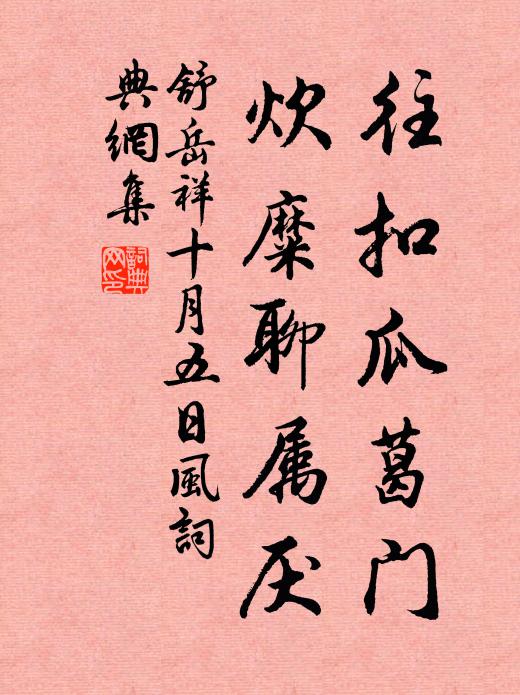 往扣瓜葛门
炊糜聊属厌
舒岳祥十月五日風詞
典網集
詞典网印